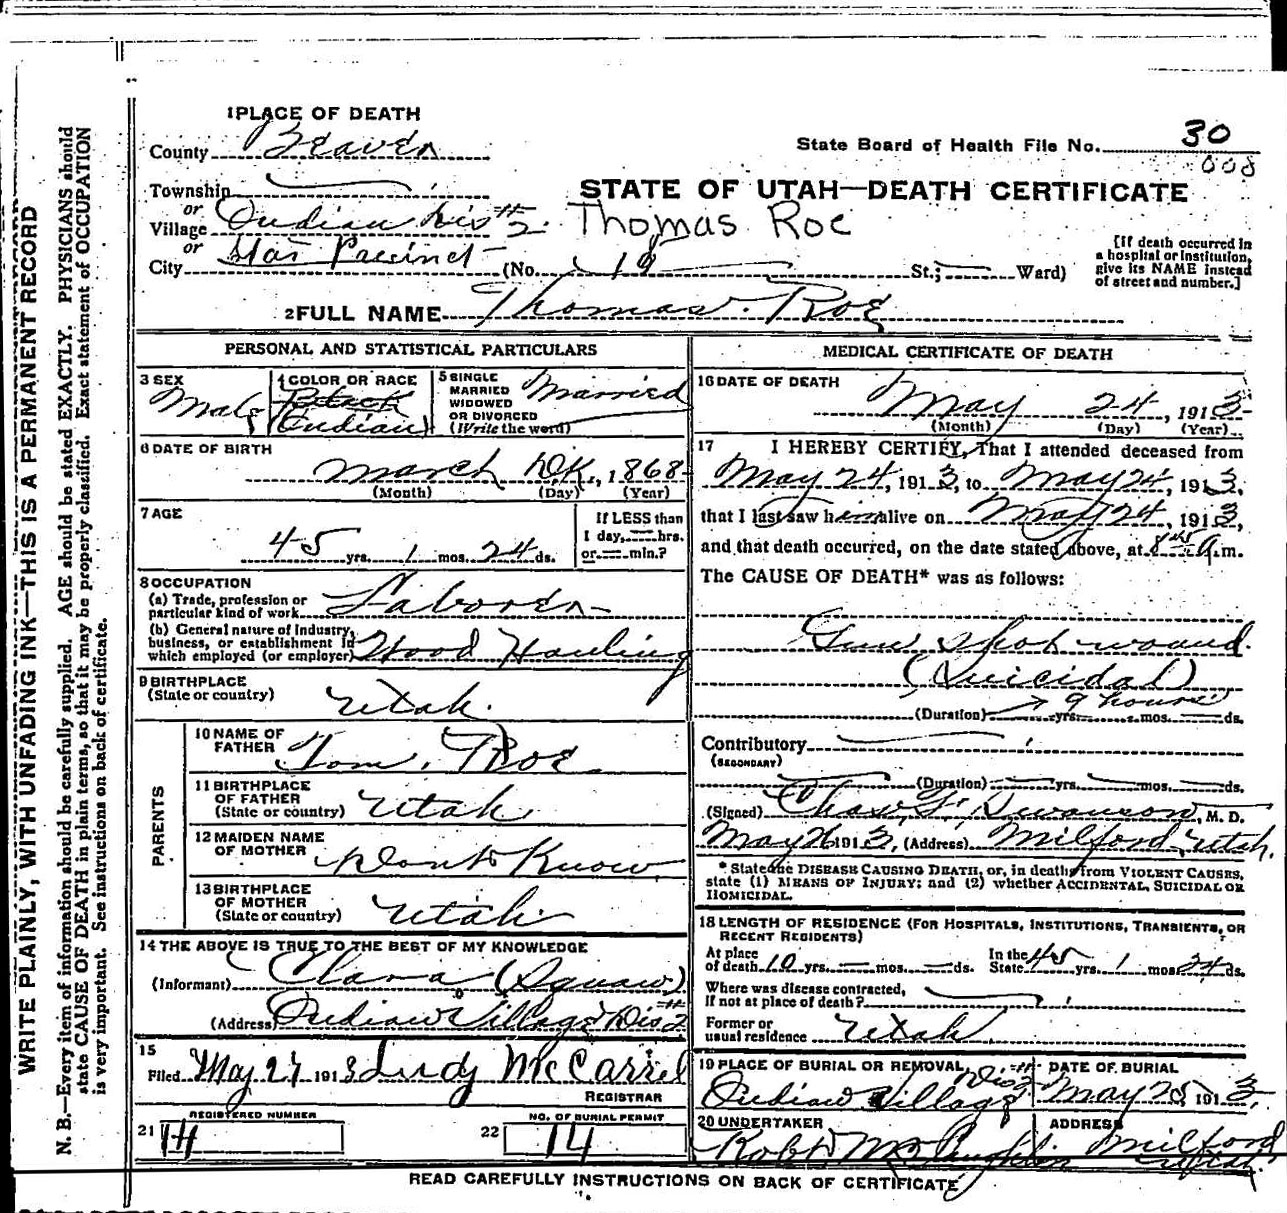 1 PLACE OF DEATH
County Beaver
State Board of Health File No. 30
008
Township
STATE OF UTAH—DEATH CERTIFICATE
or
Village Indian Dis #2
Thomas Roe
or
City Star Precinct (No. 19 St.; Ward)
[If death occurred in a hospital or institution, give its NAME instead of street and number.]
2 FULL NAME Thomas Roe
PERSONAL AND STATISTICAL PARTICULARS
3 SEX
Male
4 COLOR OR RACE
Black
Indian
5 SINGLE
MARRIED
WIDOWED
OR DIVORCED
(Write the word)
Married
6 DATE OF BIRTH
March D.K., 1868
(Month) (Day) (Year)
7 AGE
45 yrs. 1 mos. 24 ds.
If LESS than
1 day, hrs.
or min.?
8 OCCUPATION
(a) Trade, profession or
particular kind of work Laborer
(b) General nature of Industry,
business, or establishment in
which employed (or employer) Wood Hauling
9 BIRTHPLACE
(State or country) Utah.
PARENTS
10 NAME OF
FATHER Tom. Roe.
11 BIRTHPLACE
OF FATHER
(State or country) Utah
12 MAIDEN NAME
OF MOTHER Dont Know
13 BIRTHPLACE
OF MOTHER
(State or country) Utah
14 THE ABOVE IS TRUE TO THE BEST OF MY KNOWLEDGE
(Informant) Clara (Squaw)
(Address) Indian Village Dis #2
15
Filed May 27 1913 Judy McCarrel
REGISTRAR
REGISTERED NUMBER
21 14
NO. OF BURIAL PERMIT
22 14
MEDICAL CERTIFICATE OF DEATH
16 DATE OF DEATH
May 24, 1913
(Month) (Day) (Year)
17 I HEREBY CERTIFY, That I attended deceased from
May 24, 1913, to May 24, 1913,
that I last saw him alive on May 24, 1913,
and that death occurred, on the date stated above, at 8 a.m.
The CAUSE OF DEATH* was as follows:
Gun shot wound.
(Suicidal)
9 hours
(Duration) yrs. mos. ds.
Contributory
(SECONDARY)
(Duration) yrs. mos. ds.
(Signed) Chas. G. Swanson, M. D.
May 26 1913, (Address) Milford, Utah.
* State the DISEASE CAUSING DEATH, or, in deaths from VIOLENT CAUSES,
state (1) MEANS OF INJURY; and (2) whether ACCIDENTAL, SUICIDAL OR
HOMICIDAL.
18 LENGTH OF RESIDENCE (FOR HOSPITALS, INSTITUTIONS, TRANSIENTS, OR
RECENT RESIDENTS)
At place
of death 10 yrs. mos. ds.
In the
State 45 yrs. 1 mos. 24 ds.
Where was disease contracted,
if not at place of death?
Former or
usual residence Utah
19 PLACE OF BURIAL OR REMOVAL
Indian Village Dis #2
DATE OF BURIAL
May 25, 1913
20 UNDERTAKER
Robt McLaughlin
ADDRESS
Milford
Utah.
READ CAREFULLY INSTRUCTIONS ON BACK OF CERTIFICATE
WRITE PLAINLY, WITH UNFADING INK—THIS IS A PERMANENT RECORD
N. B.—Every item of information should be carefully supplied. AGE should be stated EXACTLY. PHYSICIANS should
state CAUSE OF DEATH in plain terms, so that it may be properly classified. Exact statement of OCCUPATION
is very important. See instructions on back of certificate.